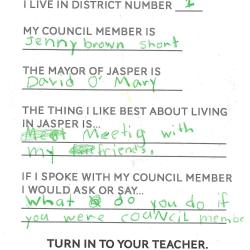 I LIVE IN DISTRICT NUMBER 1
MY COUNCIL MEMBER IS
Jenny brown short
THE MAYOR OF JASPER IS
David O'Mary
THE THING I LIKE BEST ABOUT LIVING
IN JASPER IS...
Meetig with
my friends.
IF I SPOKE WITH MY COUNCIL MEMBER
I WOULD ASK OR SAY...
what do you do if
you were council membe
TURN IN TO YOUR TEACHER.